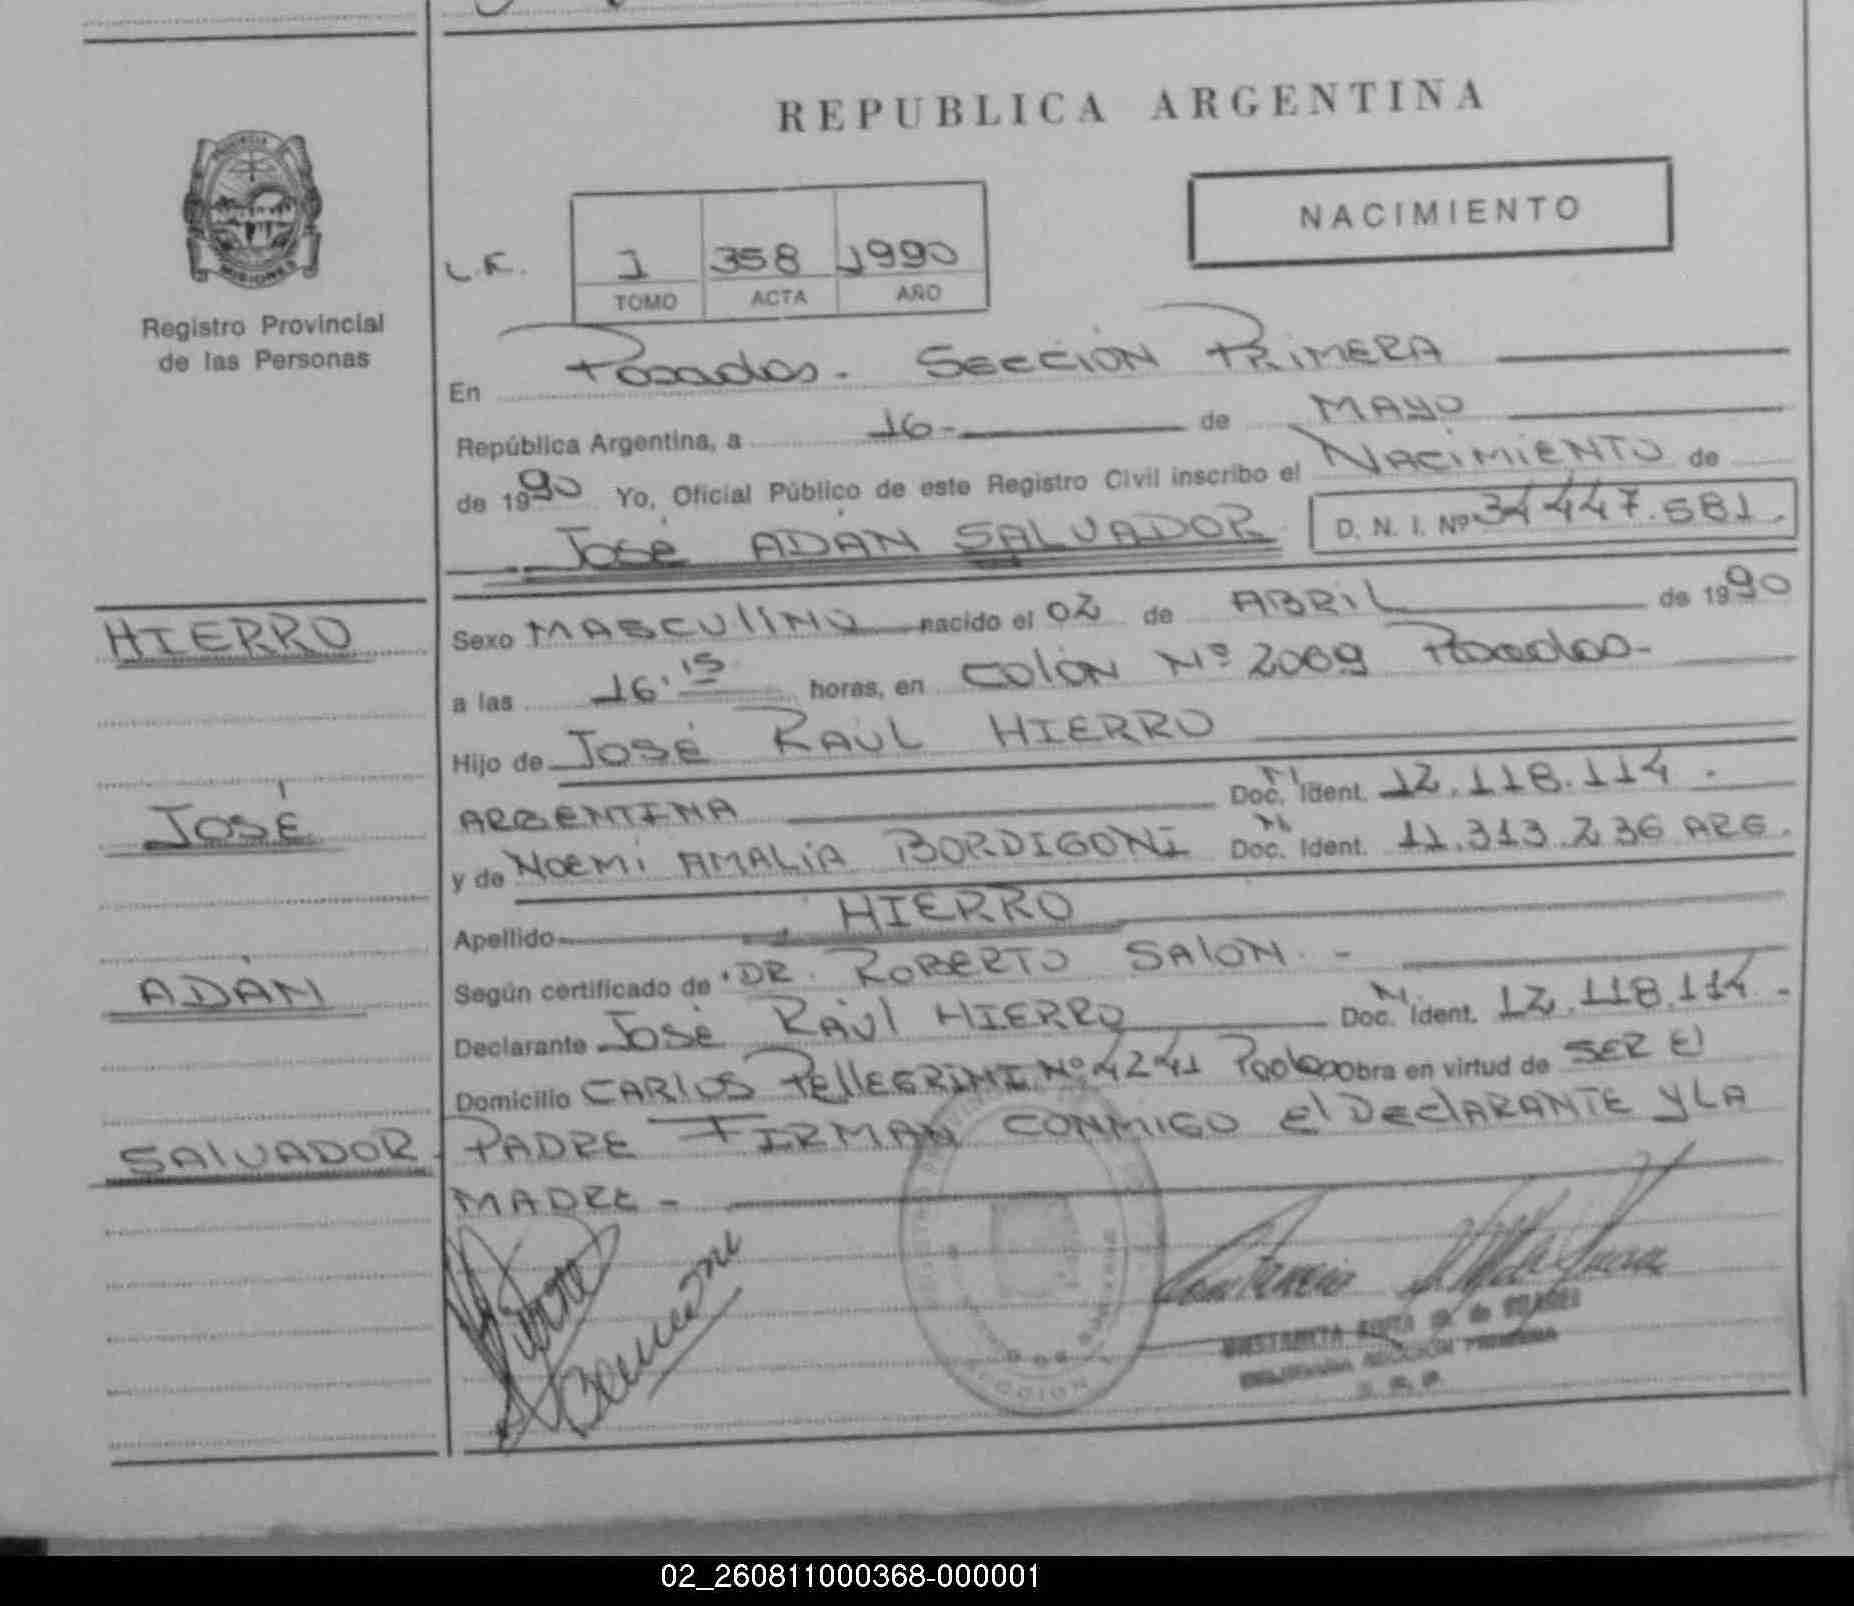 REPUBLICA ARGENTINA
NACIMIENTO
L.F.
1 358 1990
TOMO ACTA AÑO
PROVINCIA
MISIONES
Registro Provincial
de las Personas
En Posadas. SECCIÓN PRIMERA
República Argentina, a 16- de MAYO
de 1990 Yo, Oficial Público de este Registro Civil inscribo el NACIMIENTO de
JOSÉ ADÁN SALVADOR D. N. I. Nº 34447.581.
HIERRO
JOSÉ
ADÁN
SALVADOR
Sexo MASCULINO nacido el 02 de ABRIL de 1990
a las 16.15 horas, en COLÓN Nº 2069 Posadas-
Hijo de JOSÉ RAÚL HIERRO
ARGENTINA Doc. Ident. 12.118.114.
y de NOEMÍ AMALIA BORDIGONI Doc. Ident. 11.313.236 ARG.
Apellido HIERRO
Según certificado de DR. ROBERTO SALÓN.-
Declarante JOSÉ RAÚL HIERRO Doc. Ident. 12.118.114.-
Domicilio CARLOS PELLEGRINI Nº 4241 Obra en virtud de SER El
PADRE FIRMAN CONMIGO El DEClARANTE Y LA
MADRE-
SECCION
02_260811000368-000001